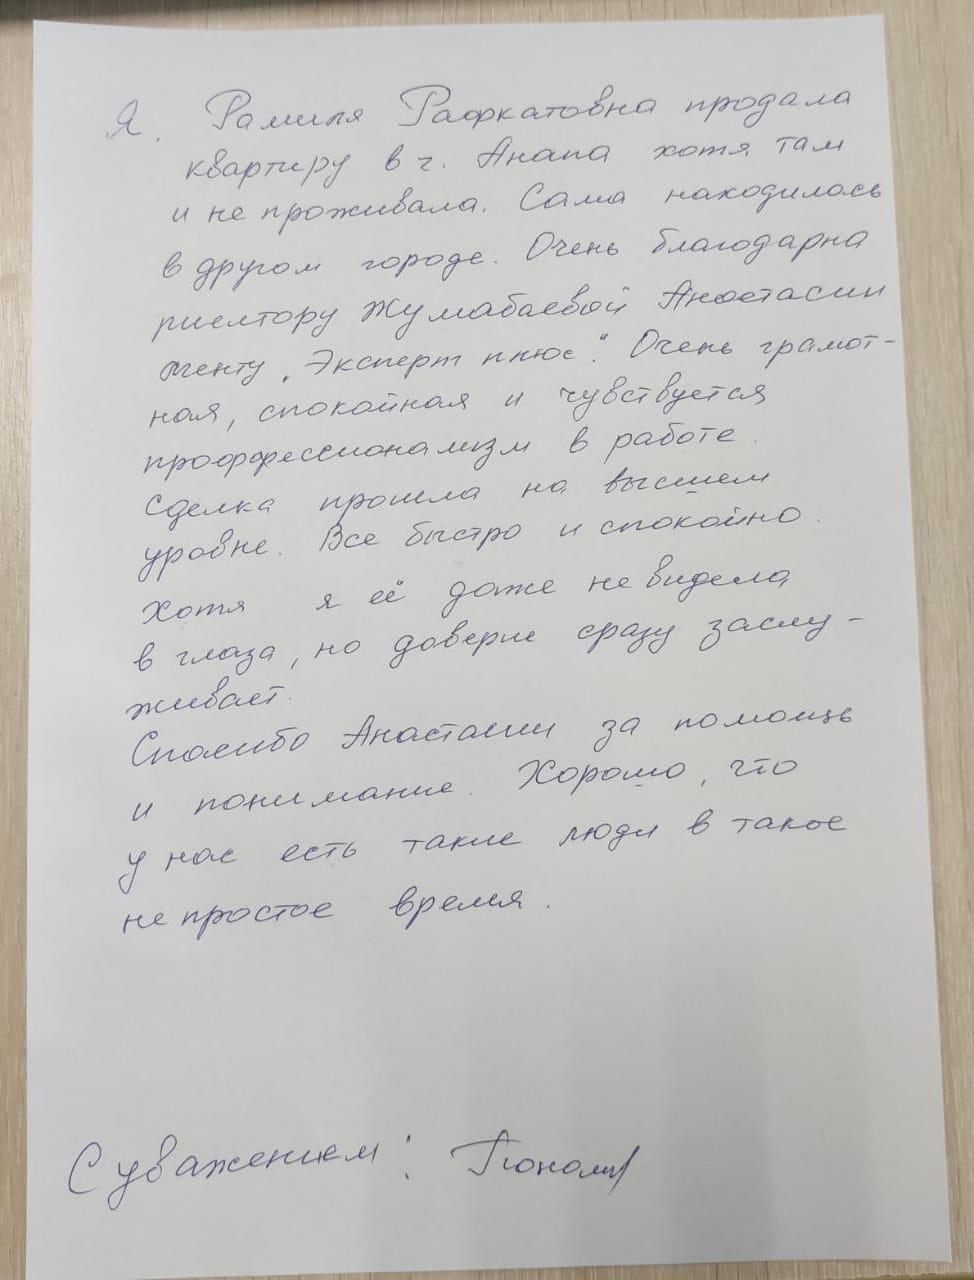 Я. Рамиля Рафкатовна продала
квартиру в г. Анапа хотя там
и не проживала. Сама находилось
в другом городе. Очень благодарна
риелтору Жумабаевой Анастасии
агенту „Эксперт плюс". Очень грамот-
ная, спокойная и чувствуется
проффессионализм в работе.
Сделка прошла на высшем
уровне. Все быстро и спокойно.
Хотя я её даже не видела
в глаза, но доверие сразу заслу-
живает.
Спасибо Анастасии за помощь
и понимание. Хорошо, что
у нас есть такие люди в такое
не простое время.
С уважением: